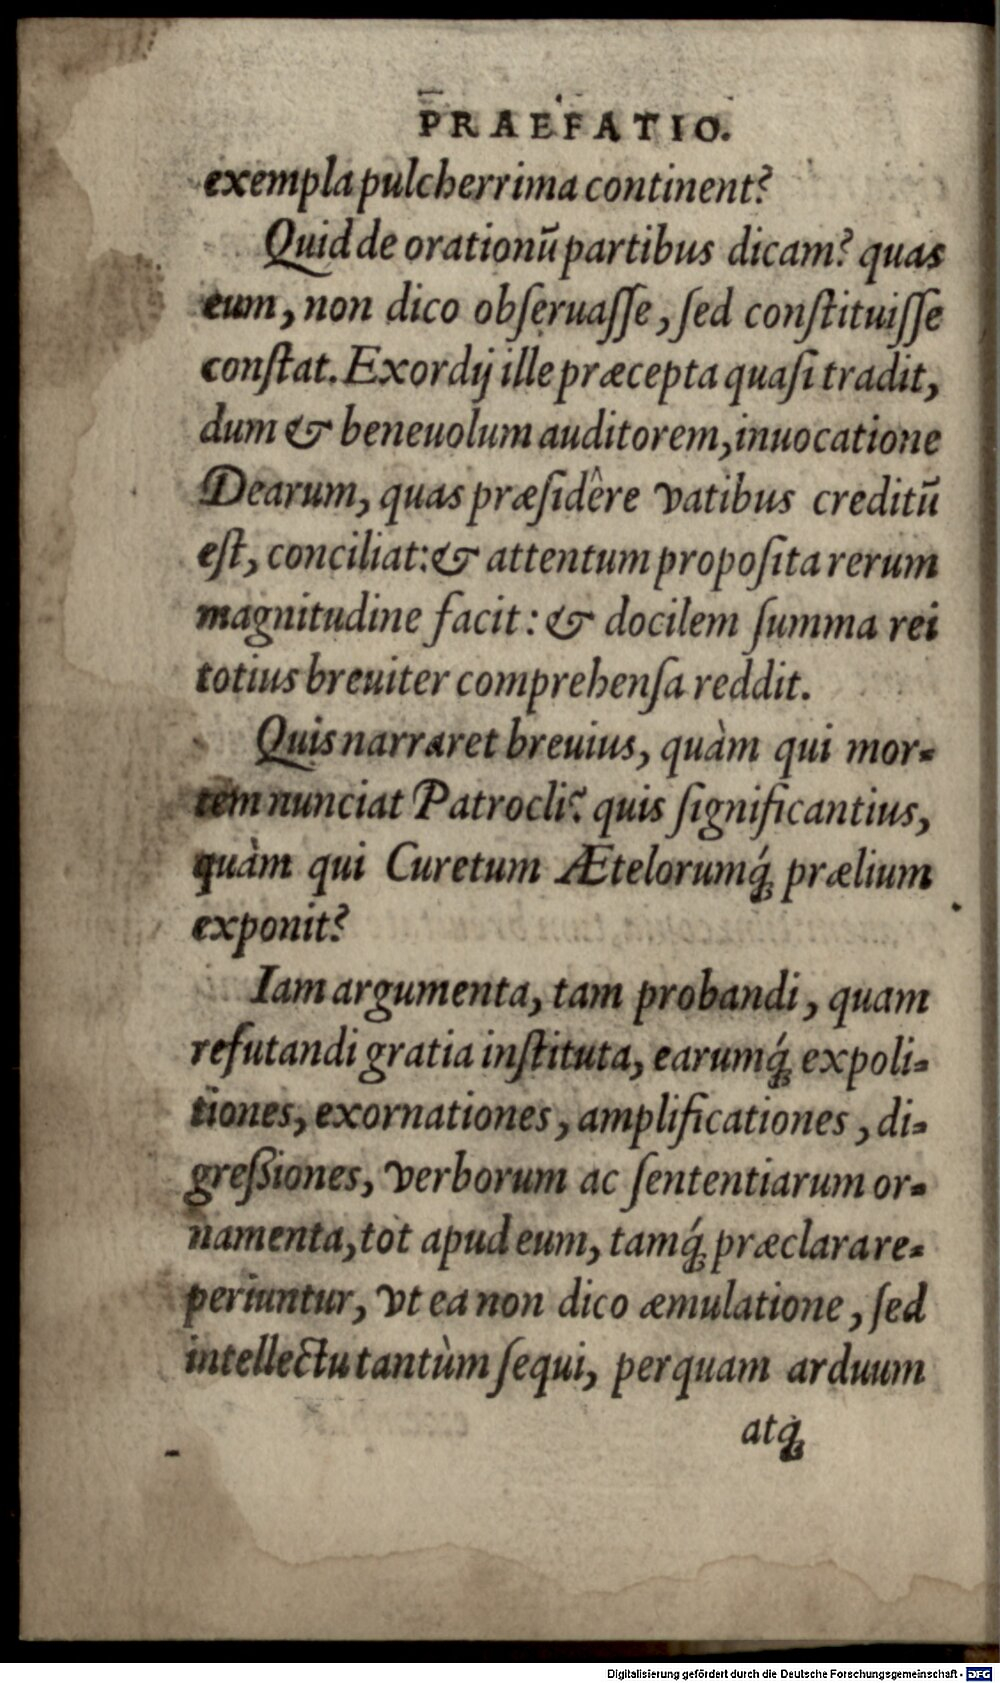 PRAEFATIO.
exempla pulcherrima continent?
Quid de orationū partibus dicam? quas
eum, non dico obſeruaſſe, ſed conſtituiſſe
conſtat. Exordij ille præcepta quaſi tradit,
dum & beneuolum auditorem, inuocatione
Dearum, quas præſidêre vatibus creditū
eſt, conciliat: & attentum propoſita rerum
magnitudine facit: & docilem ſumma rei
totius breuiter comprehenſa reddit.
Quis narraret breuius, quàm qui mor-
tem nunciat Patrocli? quis ſignificantius,
quàm qui Curetum Ætelorumq́ꝫ prælium
exponit?
Iam argumenta, tam probandi, quam
refutandi gratia inſtituta, earumq́ꝫ expoli-
tiones, exornationes, amplificationes, di-
greßiones, verborum ac ſententiarum or-
namenta, tot apud eum, tamq́ꝫ præclara re-
periuntur, vt ea non dico æmulatione, ſed
intellectu tantùm ſequi, perquam arduum
atq́ꝫ
Digitalisierung gefördert durch die Deutsche Forschungsgemeinschaft - DFG